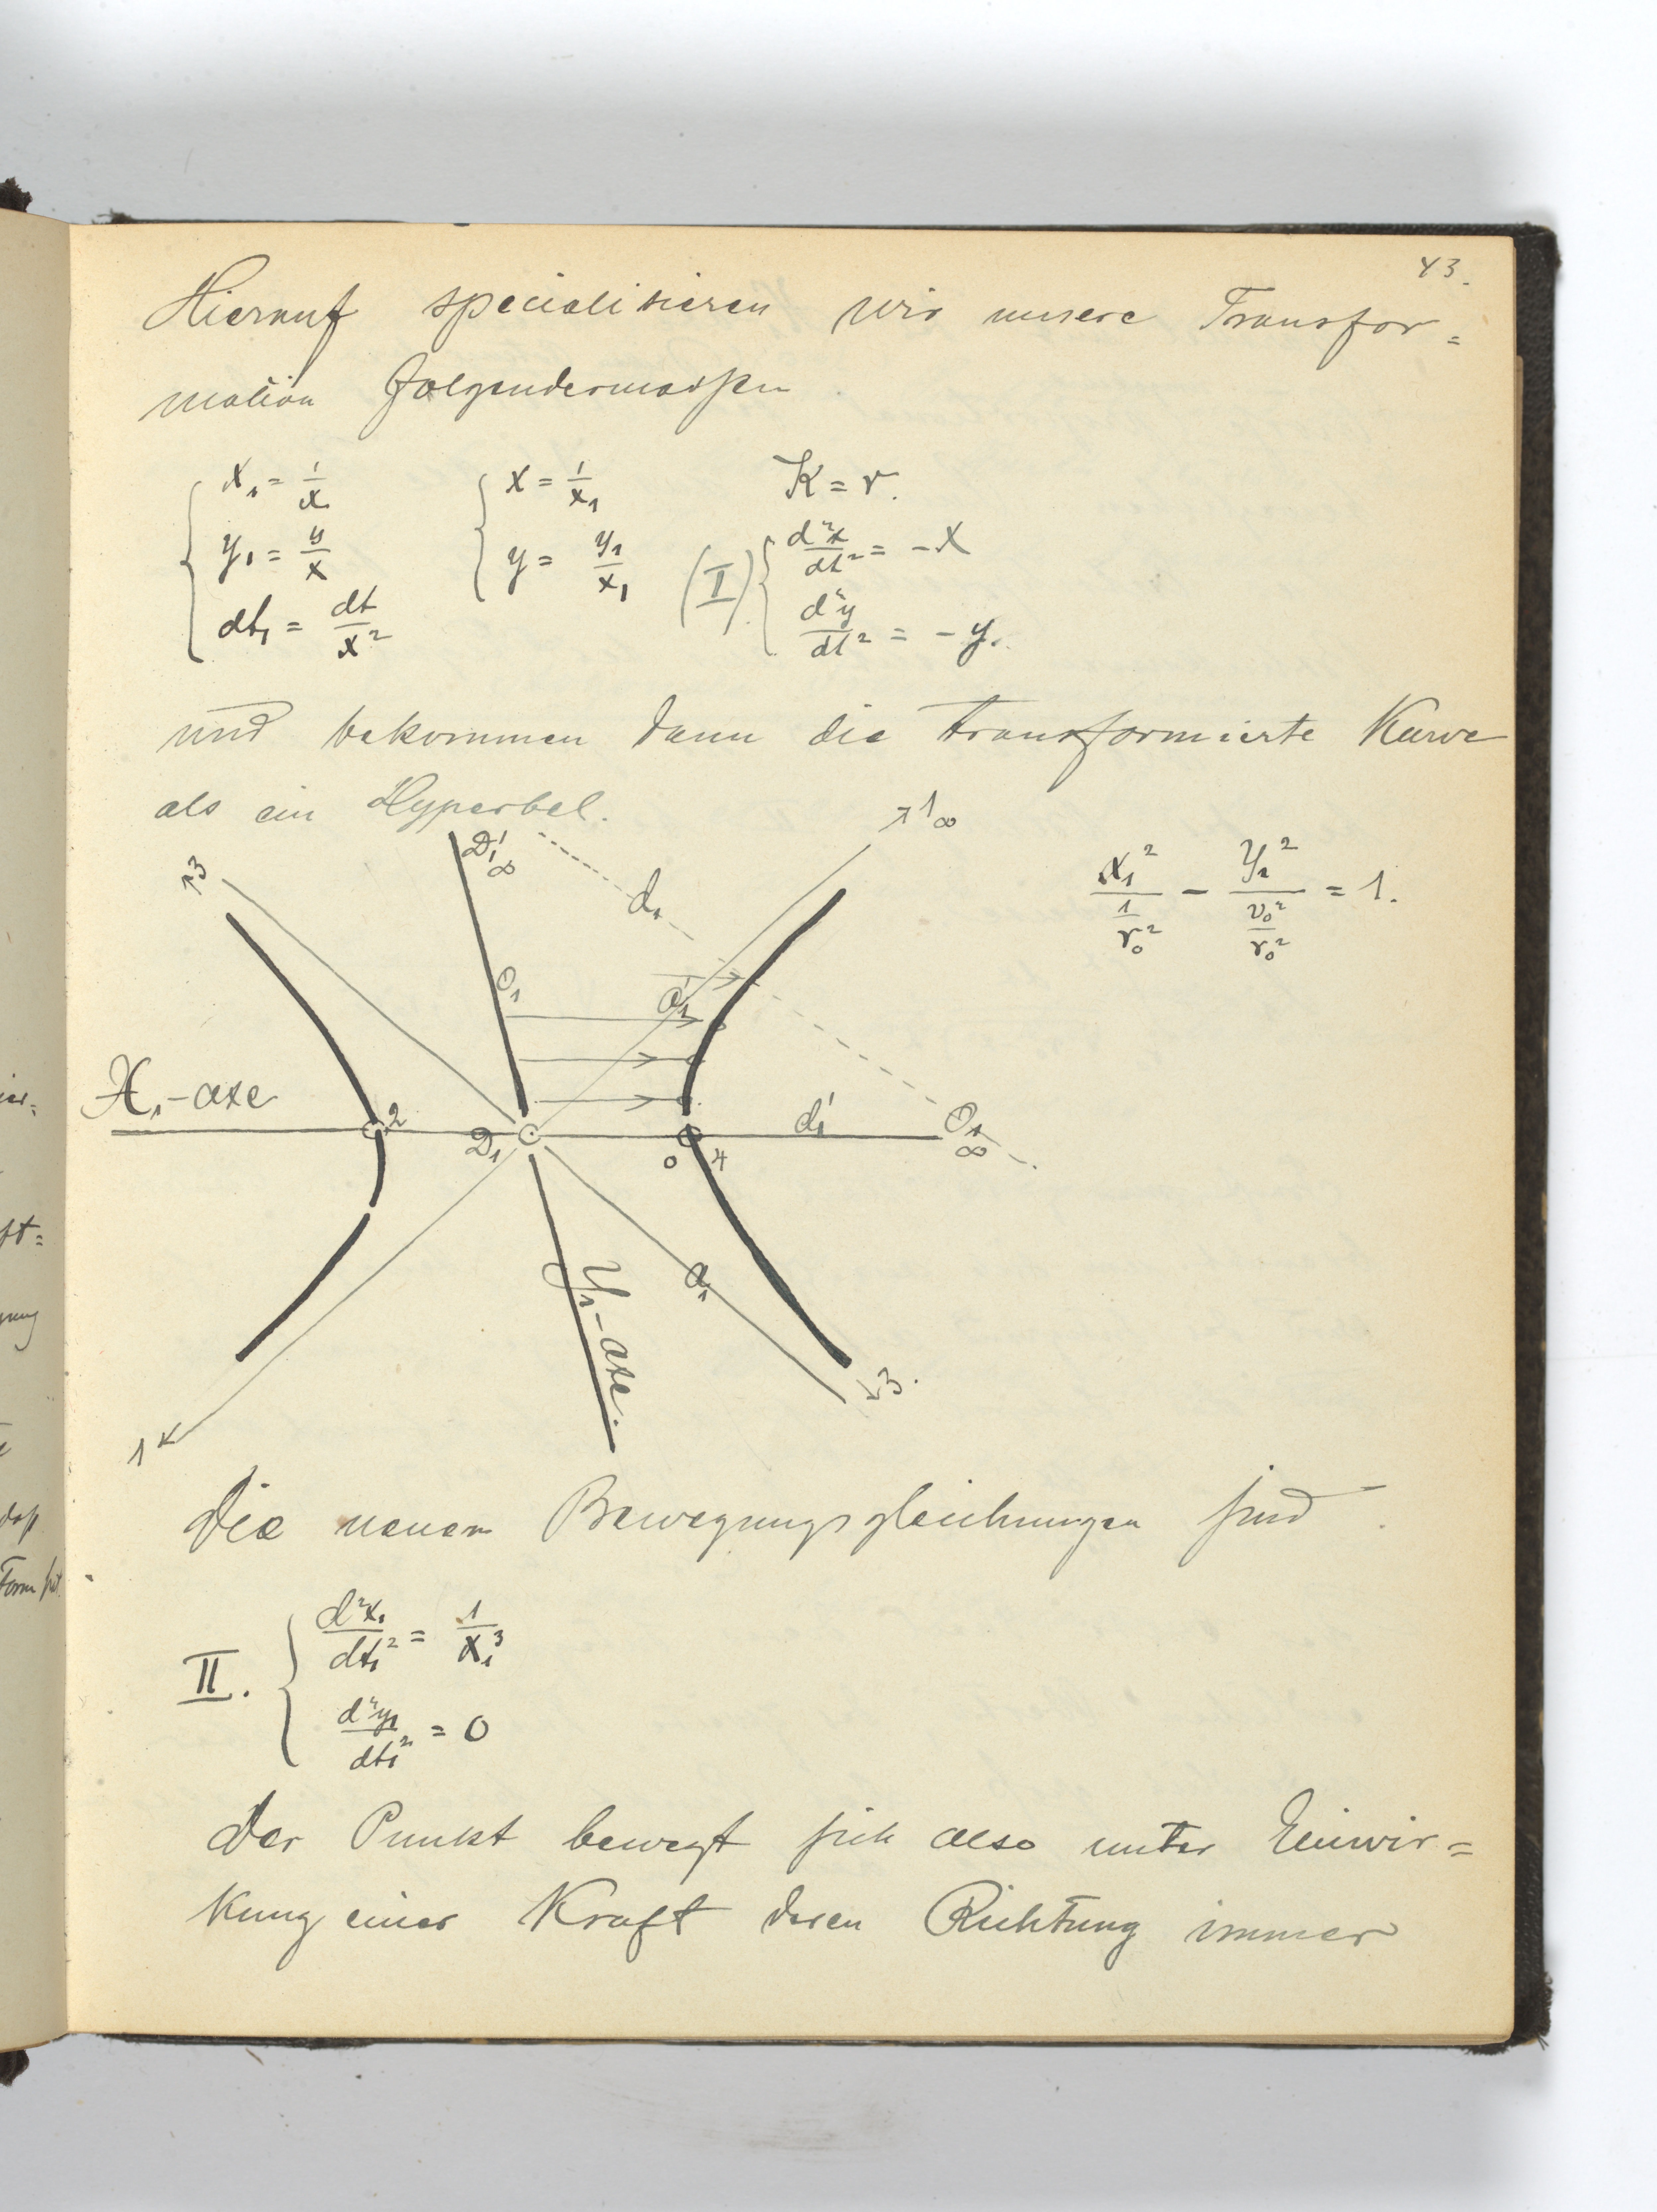 43.
Hierauf specialisieren wir unsere Transfor=
mation folgendermassen
x₁ = 1/x   x = 1/x₁   K = r.
y₁ = y/x   y = y₁/x₁   (I) d²x/dt² = -x
dt₁ = dt/x²   d²y/dt² = -y.
und bekommen dann die transformierte Kurve
als ein Hyperbel.
x₁²/(1/r₀²) - y₁²/(v₀²/r₀²) = 1.
3
D₁' ∞
d₁
1 ∞
O₁
a₁'
X₁-axe
2
D₁
0
4
d₁'
O₁ ∞
a₁
Y₁-axe.
3.
1
Die neuen Bewegungsgleichungen sind
II. d²x₁/dt₁² = 1/x₁³
d²y₁/dt₁² = 0
Der Punkt bewegt sich also unter Einwir=
kung einer Kraft deren Richtung immer